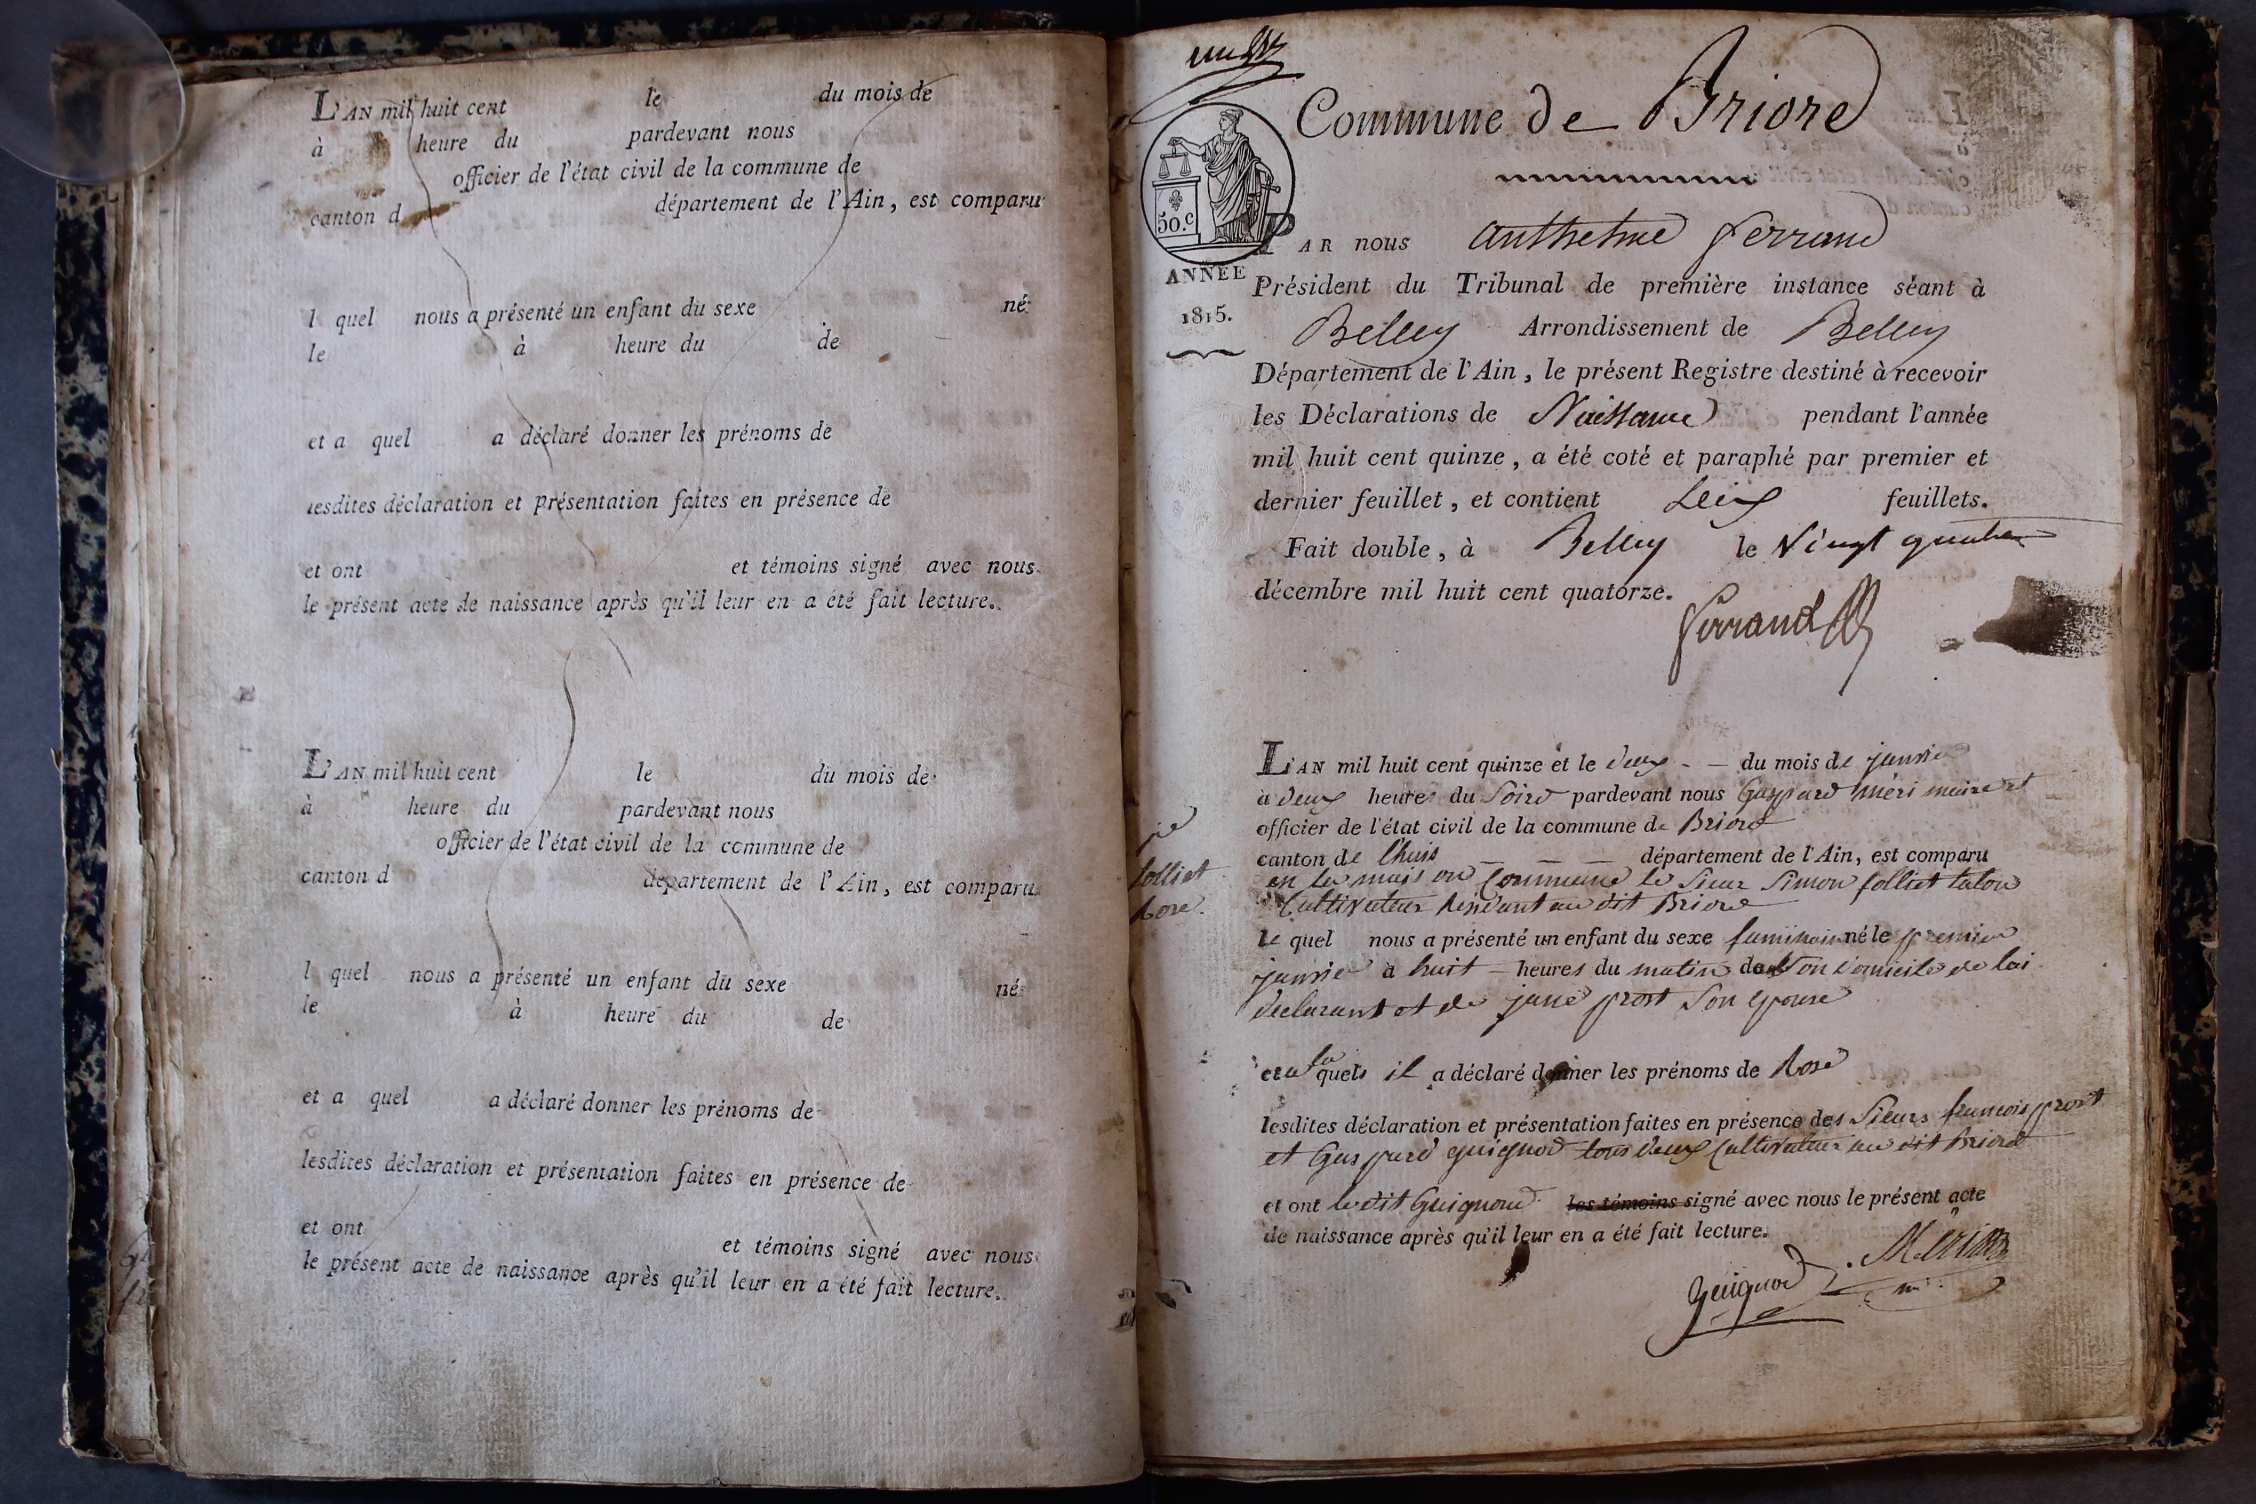 L'AN mil huit cent le du mois de
à heure du pardevant nous
officier de l'état civil de la commune de
canton d département de l'Ain, est comparu
l quel nous a présenté un enfant du sexe né
le à heure du de
et a quel a déclaré donner les prénoms de
lesdites déclaration et présentation faites en présence de
et ont et témoins signé avec nous
le présent acte de naissance après qu'il leur en a été fait lecture.
L'AN mil huit cent le du mois de
à heure du pardevant nous
officier de l'état civil de la commune de
canton d département de l'Ain, est comparu
l quel nous a présenté un enfant du sexe né
le à heure du de
et a quel a déclaré donner les prénoms de
lesdites déclaration et présentation faites en présence de
et ont et témoins signé avec nous
le présent acte de naissance après qu'il leur en a été fait lecture.
Commune de Briord
50.c
ANNÉE
1815.
PAR nous Anthelme Ferrand
Président du Tribunal de première instance séant à
Belley Arrondissement de Belley
Département de l'Ain, le présent Registre destiné à recevoir
les Déclarations de Naissance pendant l'année
mil huit cent quinze, a été coté et paraphé par premier et
dernier feuillet, et contient feuillets.
Fait double, à Belley le vingt quatre
décembre mil huit cent quatorze.
Ferrand
L'AN mil huit cent quinze et le deux du mois de janvier
à deux heures du Soird pardevant nous Gaspard méri maire et
officier de l'état civil de la commune de Briord
canton de lhuis département de l'Ain, est comparu
en la maison Commune le Sieur Simon folliet talon
Cultivateur Résidant au dit Briord
le quel nous a présenté un enfant du sexe faminin né le premier
janvier à huit heures du matin de Son domicile de lui
declarant et de jane prost Son epouse
folliet
Rose.
et a la quels il a déclaré donner les prénoms de Rose
lesdites déclaration et présentation faites en présence des Sieurs francois prost
et Gaspard guignod tous deux Cultivateur au dit Briord
et ont ledit Guignond les témoins signé avec nous le présent acte
de naissance après qu'il leur en a été fait lecture.
guignod